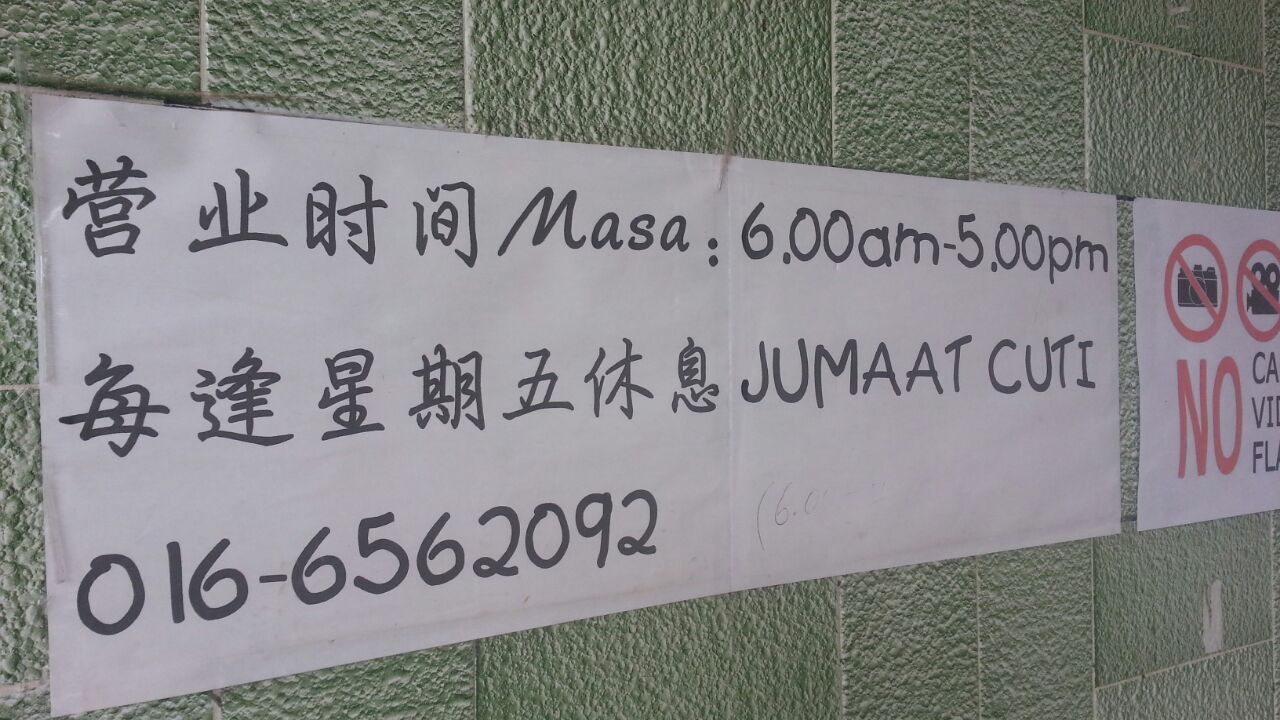 营业时间 Masa: 6.00am-5.00pm
每逢星期五休息 JUMAAT CUTI
016-6562092
NO